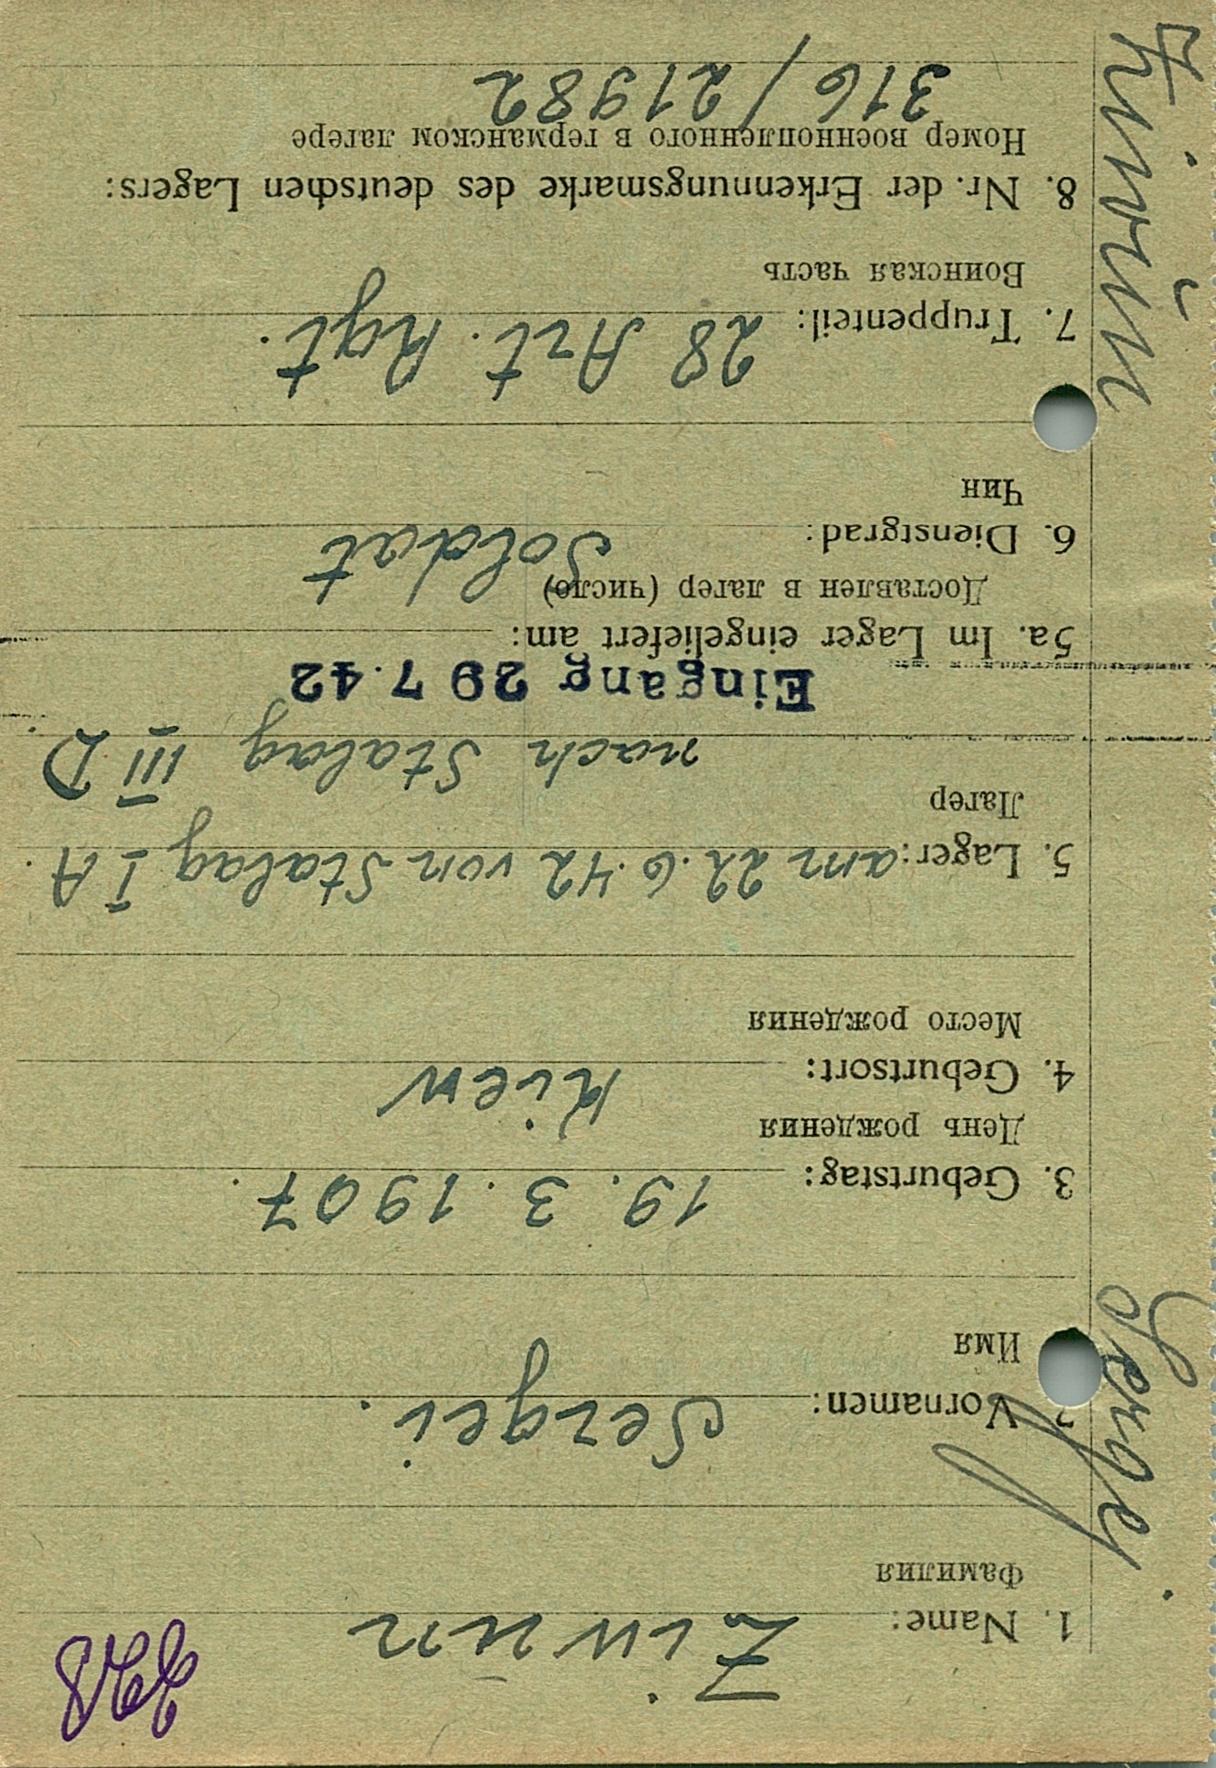 1. Name: Ziwün
Фамилия
2. Vornamen: Sergei.
Имя
3. Geburtstag: 19. 3. 1907.
День рождения
4. Geburtsort: Kiew
Место рождения
5. Lager: am 22.6.42 von Stalag I A.
Лагер
nach Stalag III D.
Eingang 29 7.42
5a. Im Lager eingeliefert am:
Доставлен в лагер (число)
6. Dienstgrad: Soldat
Чин
7. Truppenteil: 28 Art. Rgt.
Воинская часть
8. Nr. der Erkennungsmarke des deutschen Lagers:
Номер военнопленного в германском лагере
316/21982
Ziwün Sergej.